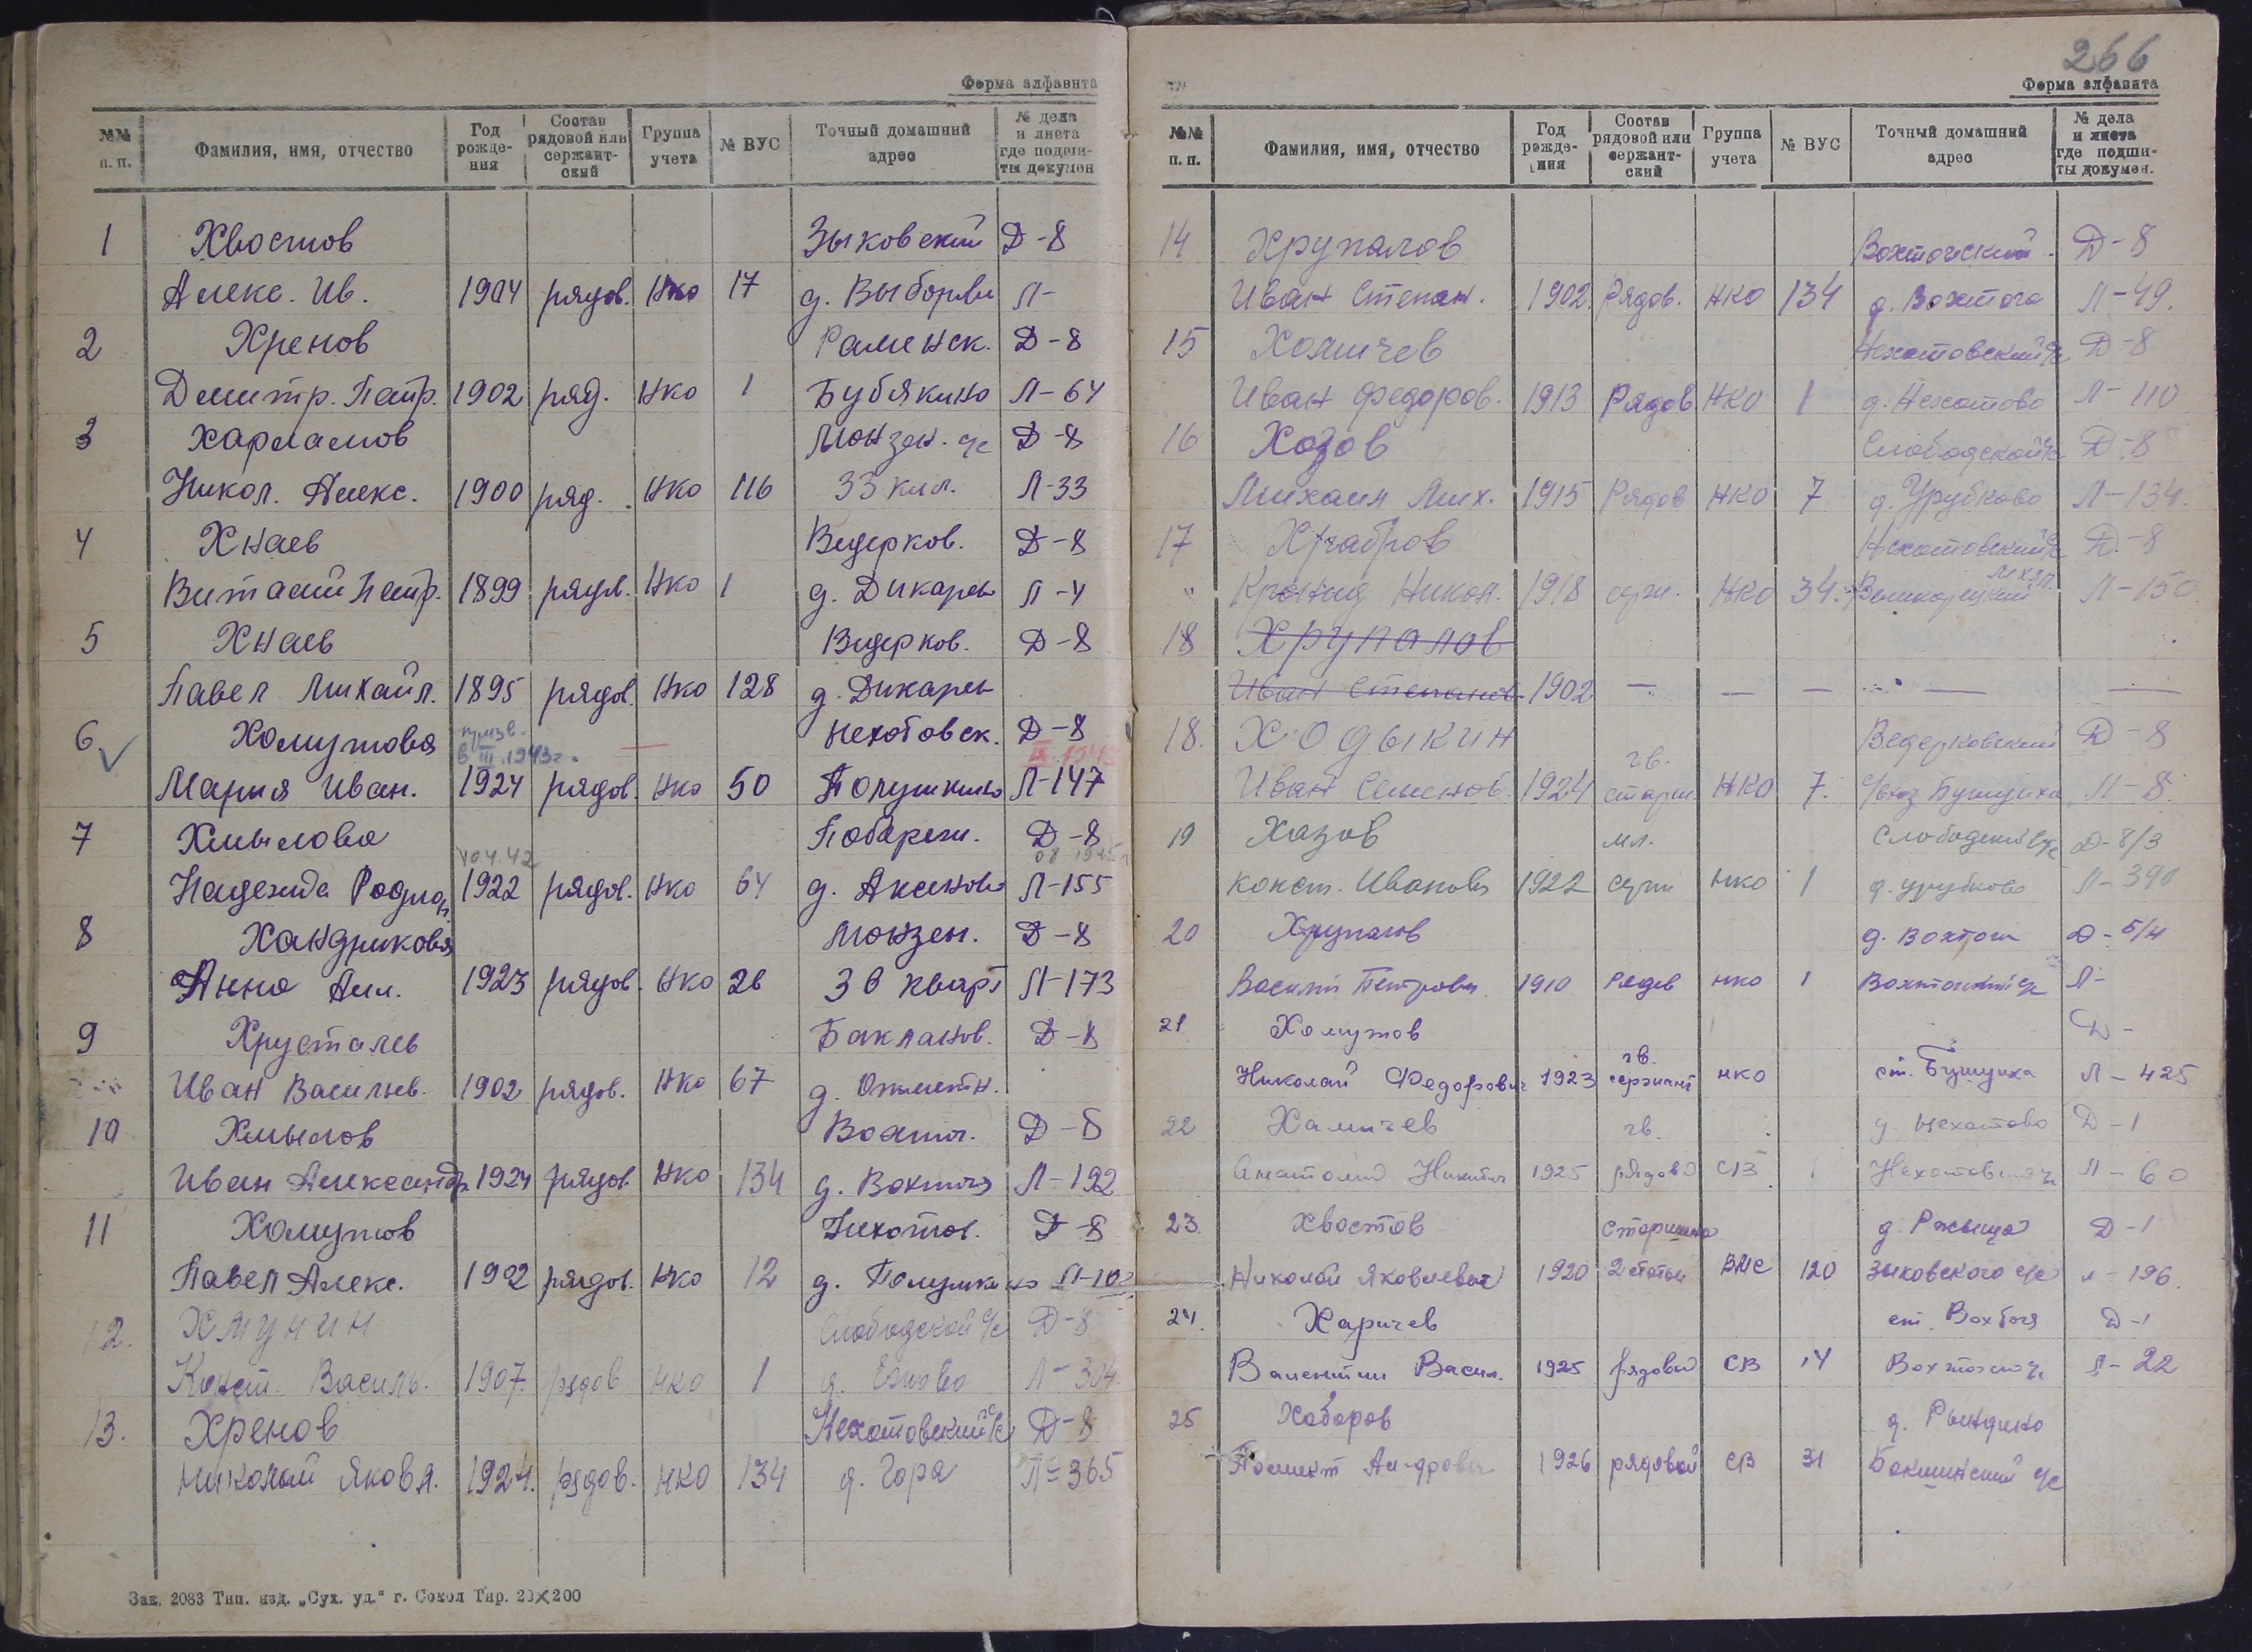 Форма алфавита
№№ п. п. Фамилия, имя, отчество Год рождения Состав рядовой или сержантский Группа учета № ВУС Точный домашний адрес № дела и листа где подшиты докумен
1 Хвостов Зыковский Д-8
Алекс. Ив. 1904 рядов. Нко 17 д. Выборовы Л-
2 Хренов Раменск. Д-8
Дмитр. Петр. 1902 ряд. Нко 1 Бубякино Л-64
3 Харламов Монзен. с/с Д-8
Никол. Алекс. 1900 ряд. Нко 116 33 кил. Л-33
4 Хнаев Ведерков. Д-8
Виталий Петр. 1899 рядов. Нко 1 д. Дикарев Л-4
5 Хнаев Ведерков. Д-8
Павел Михайл. 1895 рядов. Нко 128 д. Дикарев
6 Хомутова Нехотовск. Д-8
призв. в III.1943г.
Мария Иван. 1924 рядов. Нко 50 Полушкино Л-147
7 Хмылова Побереж. Д-8
Надежда Родион. 1922 рядов. Нко 64 д. Аксеново Л-155
8 Хандрикова Монзен. Д-8
Анна Ал. 1923 рядов. Нко 26 38 кварт Л-173
9 Хрусталев Бакланов. Д-8
Иван Васильев. 1902 рядов. Нко 67 д.
10 Хмылов Вохтог. Д-8
Иван Александр. 1924 рядов Нко 134 д. Вохтога Л-192
11 Хомутов Нехотов. Д-8
Павел Алекс. 1902 рядов. Нко 12 д. Полушкино
12. Хмунин Слободской с/с Д-8
Конст. Василь. 1907. рядов НКО 1 д. Ежово Л-304.
13. Хренов Нехотовский с/с Д-8
Николай Яковл. 1924. рядов. НКО 134 д. Гора Л-365
Зак. 2083 Тип. изд. „Сух. уд.“ г. Сокол Тир. 20×200
266
Форма алфавита
№№ п. п. Фамилия, имя, отчество Год рождения Состав рядовой или сержантский Группа учета № ВУС Точный домашний адрес № дела и листа где подшиты докумен.
14 Хрупалов Вохтогский Д-8
Иван Степан. 1902. Рядов. НКО 134 д. Вохтога Л-49.
15 Хомичев Нехотовский с/с Д-8
Иван Федоров. 1913 Рядов НКО 1 д. Нехотово Л-110
16 Хозов Слободской с/с Д-8
Михаил Мих. 1915 Рядов НКО 7 д. Урубково Л-134.
17 Храбров Нехотовский с/с Д-8
Кронид Никол. 1918 НКО 34. Л-150
18 Хрупалов
Иван Степанов 1902 — — — — —
18. Ходыкин Ведерковский Д-8
гв.
Иван Семенов. 1924 старш. НКО 7. с/хоз Бушуиха Л-8.
19 Хазов мл. Слободский с/с Д-8/3
Конст. Иванович 1922 серж НКО 1 д. Урубково Л-390
20 Хрупалов д. Вохтога Д-5/4
Василий Петрович 1910 Рядов НКО 1 Вохтожский с/с Л-
21 Хомутов Д-
гв.
Николай Федорович 1923 сержант НКО ст. Бушуиха Л-425
22 Хамичев гв. д. Нехотово Д-1
Анатолий Никитич 1925 рядово СВ 1 Нехотовский с/с Л-60
23. Хвостов Старшина д. Ржыща Д-1
Николай Яковлевич 1920 2 статьи ВМС 120 Зыковского с/с Л-196.
24. Харичев ст. Вохтога Д-1
Валентин Васил. 1925 рядовой СВ 14 Вохтожский с/с Л-22
25 Хабаров д. Рындино
1926 рядовой СВ 31 с/с